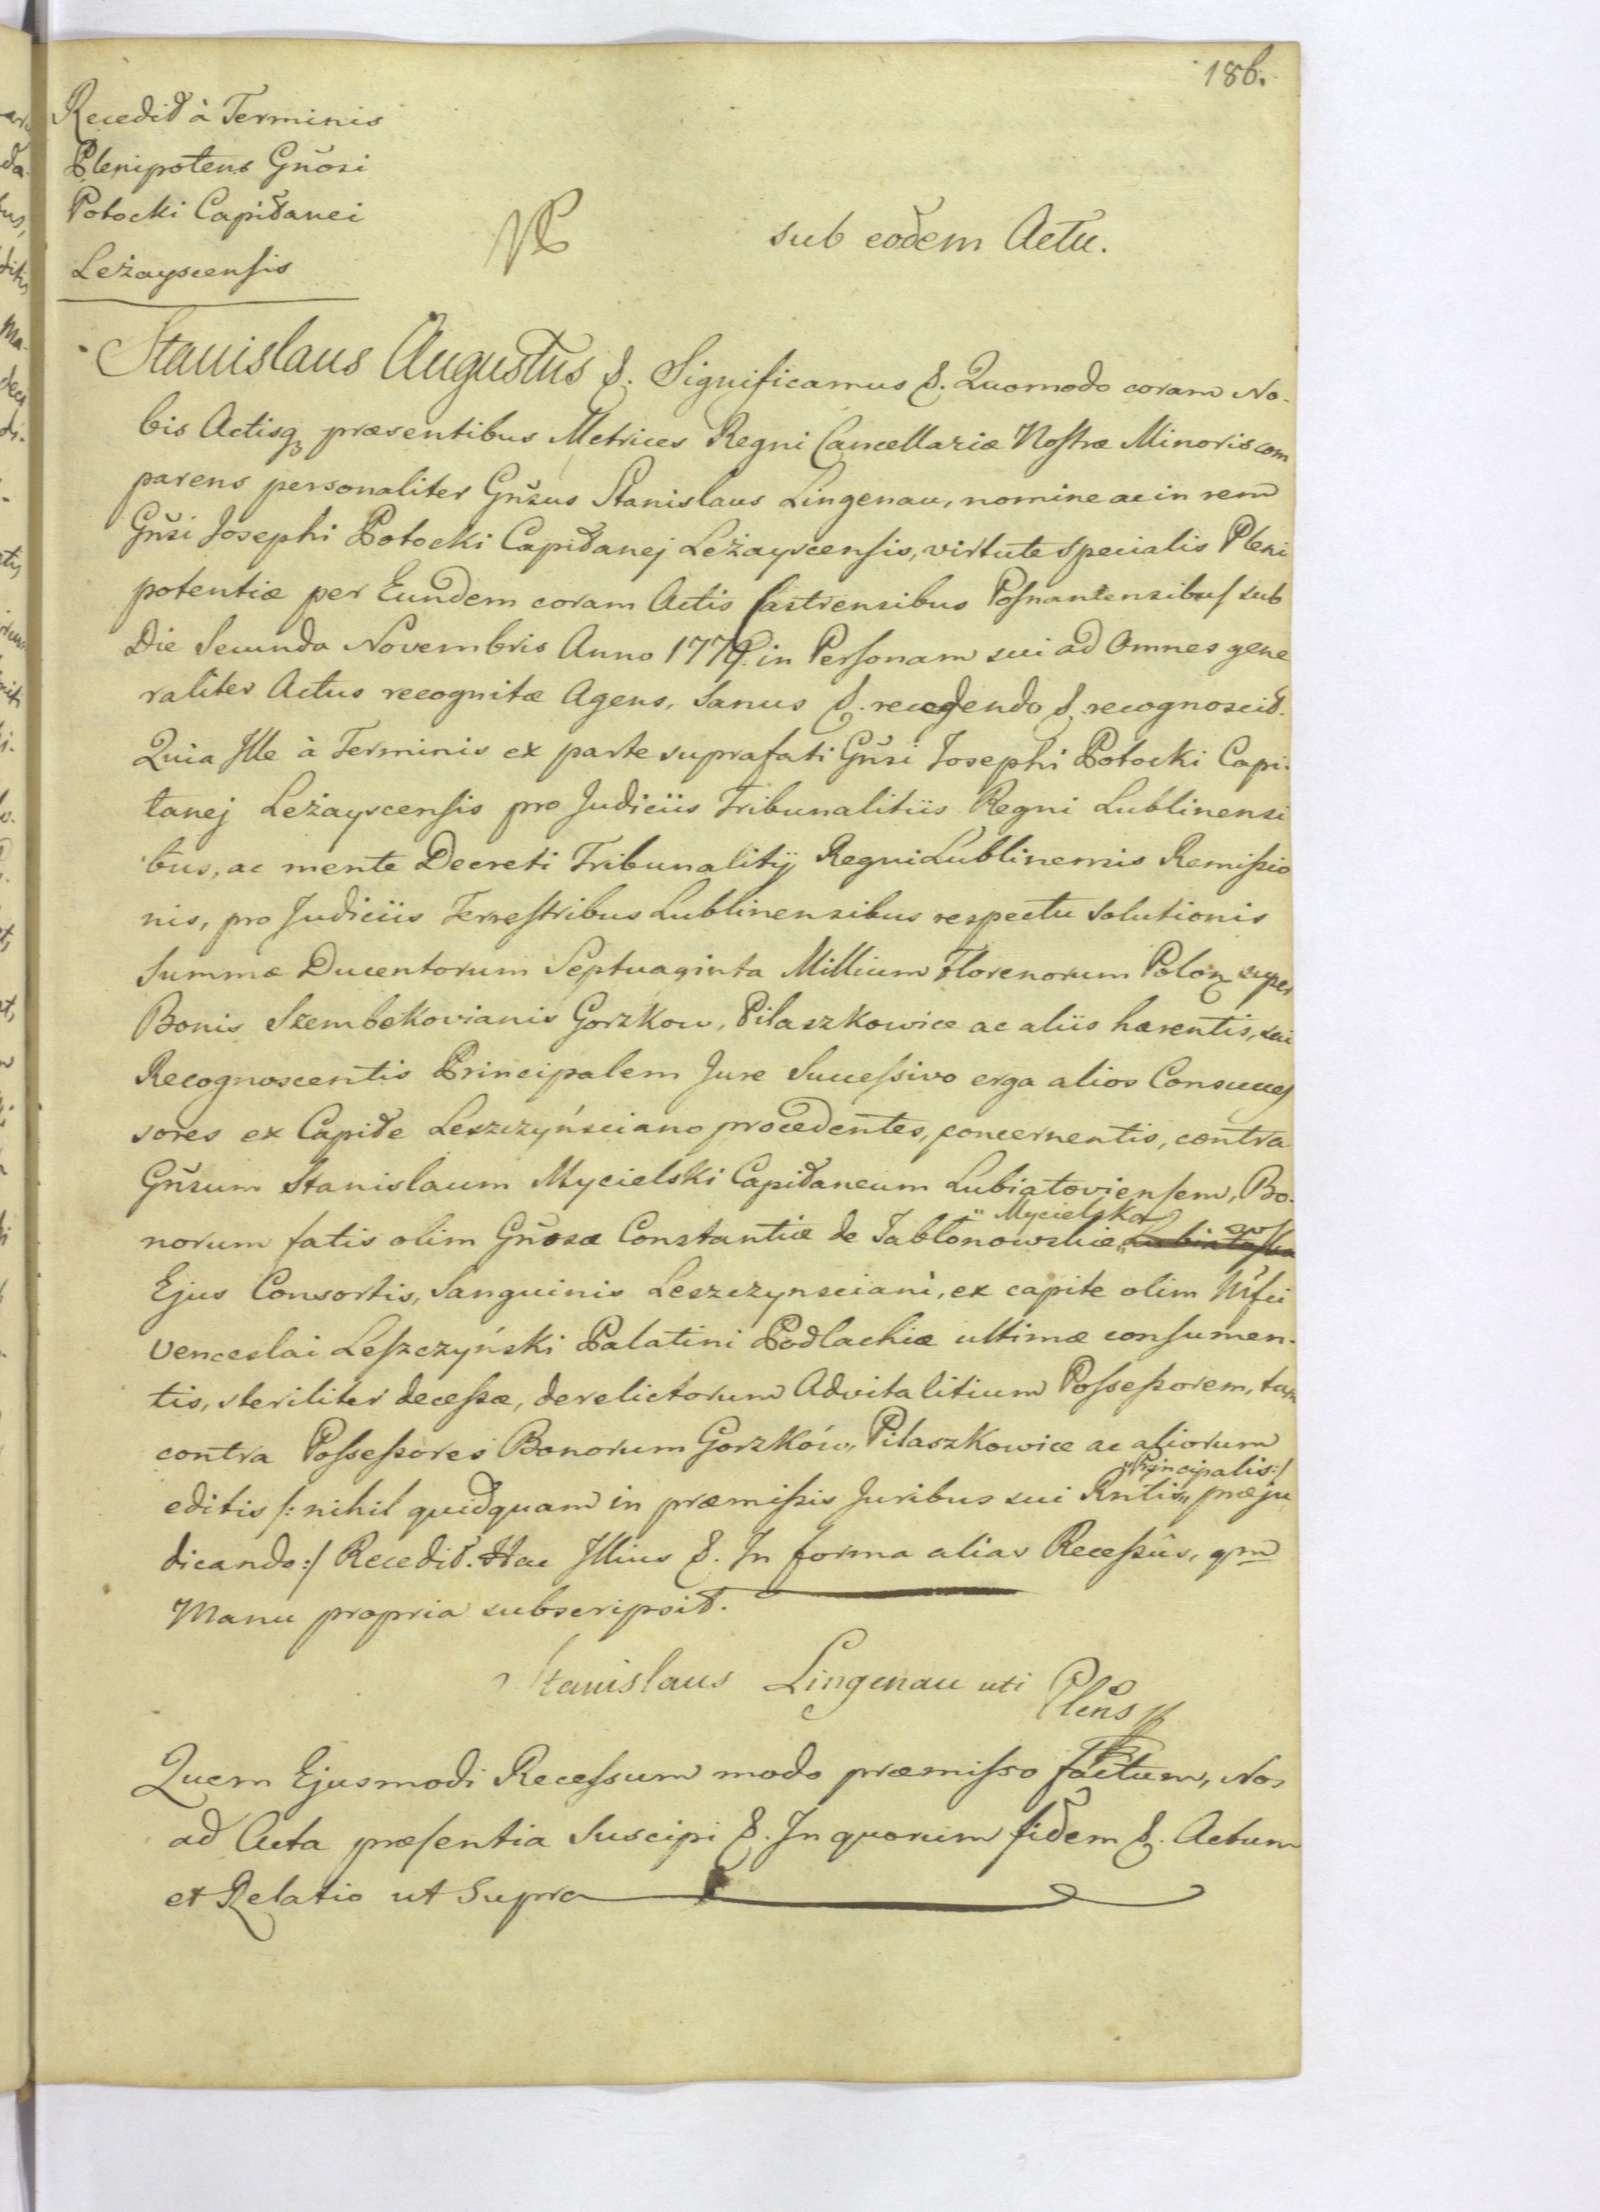 186.
Recedit à Terminis
Plenipotens Gnosi
Potocki Capitanei
Leżayscensis
sub eodem Actu.
Stanislaus Augustus &. Significamus &. Quomodo coram No-
bis Actisq3 præsentibus Metrices Regni Cancellariæ Nostræ Minoris com
parens personaliter Gnsus Stanislaus Lingenau, nomine ac in rem
Gnsi Josephi Potocki Capitanej Leżayscensis, virtute specialis Pleni
potentiæ per Eundem coram Actis Castrensibus Posnaniensibus sub
Die Secunda Novembris Anno in Personam sui ad Omnes gene
raliter Actus recognitæ Agens, Sanus &. recedendo &. recognoscit.
Quia Ille à Terminis ex parte suprafati Gnsi Josephi Potocki Capi-
tanej Leżayscensis pro Judiciis Tribunalitiis Regni Lublinensi
bus, ac mente Decreti Tribunalitij Regni Lublinensis Remissio
nis, pro Judiciis Terrestribus Lublinensibus respectu Solutionis
Summæ Ducentorum Septuaginta Millium Florenorum Polon super
Bonis Szembekovianis Gorzkow, Pilaszkowice ac aliis hærentis, sui
Recognoscentis Principalem Jure Successivo erga alios Consucces
sores ex Capite Leszczyńsciano procedentes, concernentis, contra
Gnsum Stanislaum Mycielski Capitaneum Lubiatoviensem, Bo-
norum fatis olim Gnosæ Constantiæ de Jabłonowskie „Mycielska
Ejus Consortis, Sanguinis Leszczynsciani, ex capite olim Mfci
Venceslai Leszczyński Palatini Podlachiæ ultimæ consumen-
tis, steriliter decessæ, derelictorum Advitalitium Possessorem, tum
contra Possessores Bonorum Gorzków, Pilaszkowice ac aliorum
editis /: nihil quidquam in præmissis Juribus sui Rntis „Principalis:/ præju
dicando:/ Recedit. Hac Illius &. In forma alias Recessûs, qm
Manu propria subscripsit.
Stanislaus Lingenau uti Plens
Quem Ejusmodi Recessum modo præmisso factum, Nos
ad Acta præsentia Suscipi &. In quorum fidem &. Actum
et Relatio ut Supra